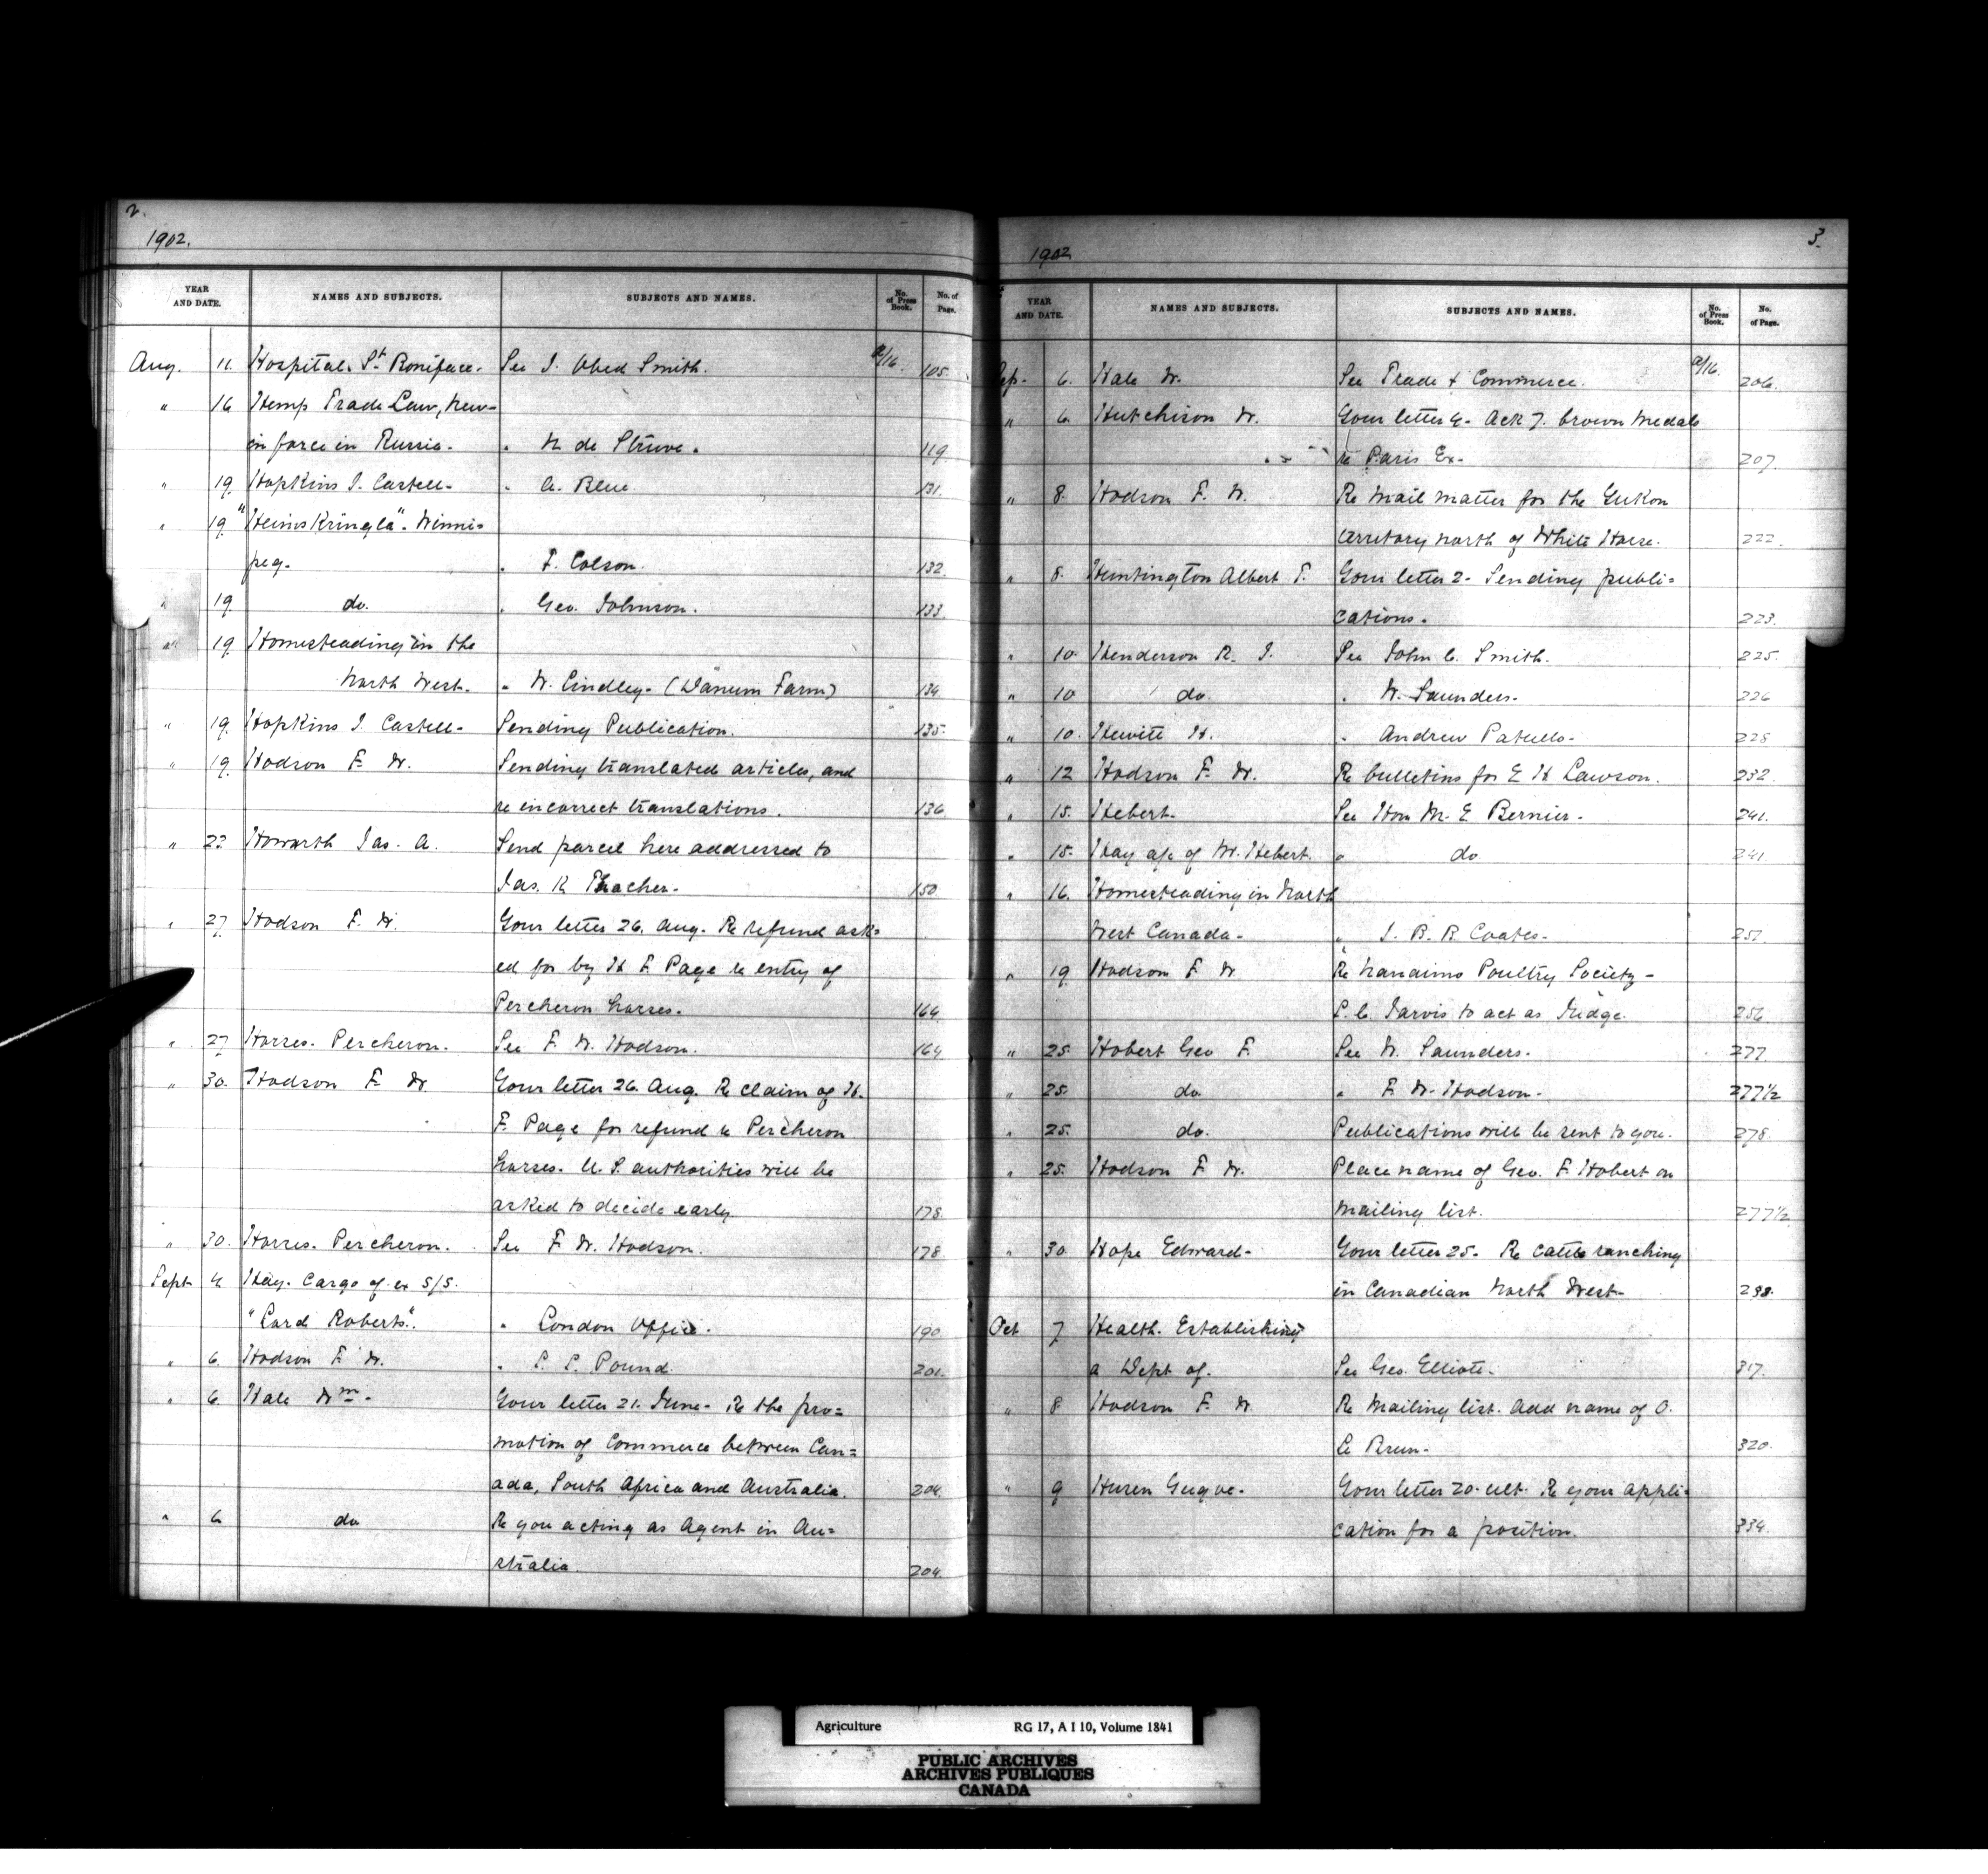 2.
1902.
YEAR AND DATE. NAMES AND SUBJECTS. SUBJECTS AND NAMES. No. of Press Book. No. of Page.
Aug. 11. Hospital. St. Boniface. See J. Obed Smith. a/16. 105.
" 16 Hemp Trade Law, New-
in force in Russia. " N. de Struve. 119.
" 19. Hopkins J. Castell- " A. Blue. 131.
" 19 "Heims Kringla". Winni-
peg. " F. Colson. 132.
" 19. do. " Geo. Johnson. 133.
" 19. Homesteading in the
North West. " W. Lindley. (Danum Farm) 134
" 19. Hopkins J. Castell- Sending Publication. 135.
" 19. Hodson F. W. Sending translated articles, and
re incorrect translations. 136.
" 22. Howarth Jas. A. Send parcel here addressed to
Jas. R. Thacher. 150.
" 27. Hodson F. W. Your letter 26. Aug. Re refund ask=
ed for by H. F. Page re entry of
Percheron horses. 164.
" 27. Horses. Percheron. See F. W. Hodson. 164
" 30. Hodson F. W. Your letter 26. Aug. Re claim of H.
F. Page for refund re Percheron
horses. U. S. authorities will be
asked to decide early. 178.
" 30. Horses. Percheron. See F. W. Hodson. 178
Sept 4 Hay. Cargo of ex S/S.
"Lord Roberts". " London Office. 190
" 6. Hodson F. W. " P. P. Pound. 201.
" 6. Hale Wm. Your letter 21. June. Re the pro=
motion of Commerce between Can=
ada, South Africa and Australia. 204.
" 6 do Re you acting as Agent in Au=
stralia. 204.
3.
1902
YEAR AND DATE. NAMES AND SUBJECTS. SUBJECTS AND NAMES. No. of Press Book. No. of Page.
Sep. 6. Hale W. See Trade & Commerce. a/16. 206.
" 6. Hutchison W. Your letter 4. Ack 7. brown Medals
re Paris Ex. 207.
" 8. Hodson F. W. Re Mail matter for the Yukon
territory north of White Horse. 222.
" 8. Huntington Albert T. Your letter 2. Sending publi=
cations. 223.
" 10. Henderson R. J. See John C. Smith. 225.
" 10 do. " W. Saunders. 226
" 10. Hewitt H. " Andrew Patullo. 228
" 12 Hodson F. W. Re bulletins for E H Lawson. 232.
" 15. Hebert. See Hon M. E. Bernier. 241.
" 15. Hay a/c of W. Hebert. " do 241
" 16. Homesteading in North
West Canada. " J. B. R. Coates.
" 19 Hodson F W Re Nanaimo Poultry Society-
P. C. Jarvis to act as Judge. 256
" 25. Hobert Geo F. See W. Saunders. 277.
" 25. do " F. W. Hodson. 277 1/2
" 25. do. Publications will be sent to you. 278.
" 25. Hodson F. W. Place name of Geo. F. Hobert on
mailing list. 277 1/2
" 30 Hope Edward- Your letter 25. Re cattle ranching
in Canadian North West. 298.
Oct 7 Health. Establishing
a Dept of. See Geo. Elliott. 317.
" 8 Hodson F. W Re Mailing list. Add name of O.
Le Brun. 320.
" 9 Huren Gugve. Your letter 20. ult. Re your appli=
cation for a position. 334.
Agriculture RG 17, A I 10, Volume 1841
PUBLIC ARCHIVES
ARCHIVES PUBLIQUES
CANADA